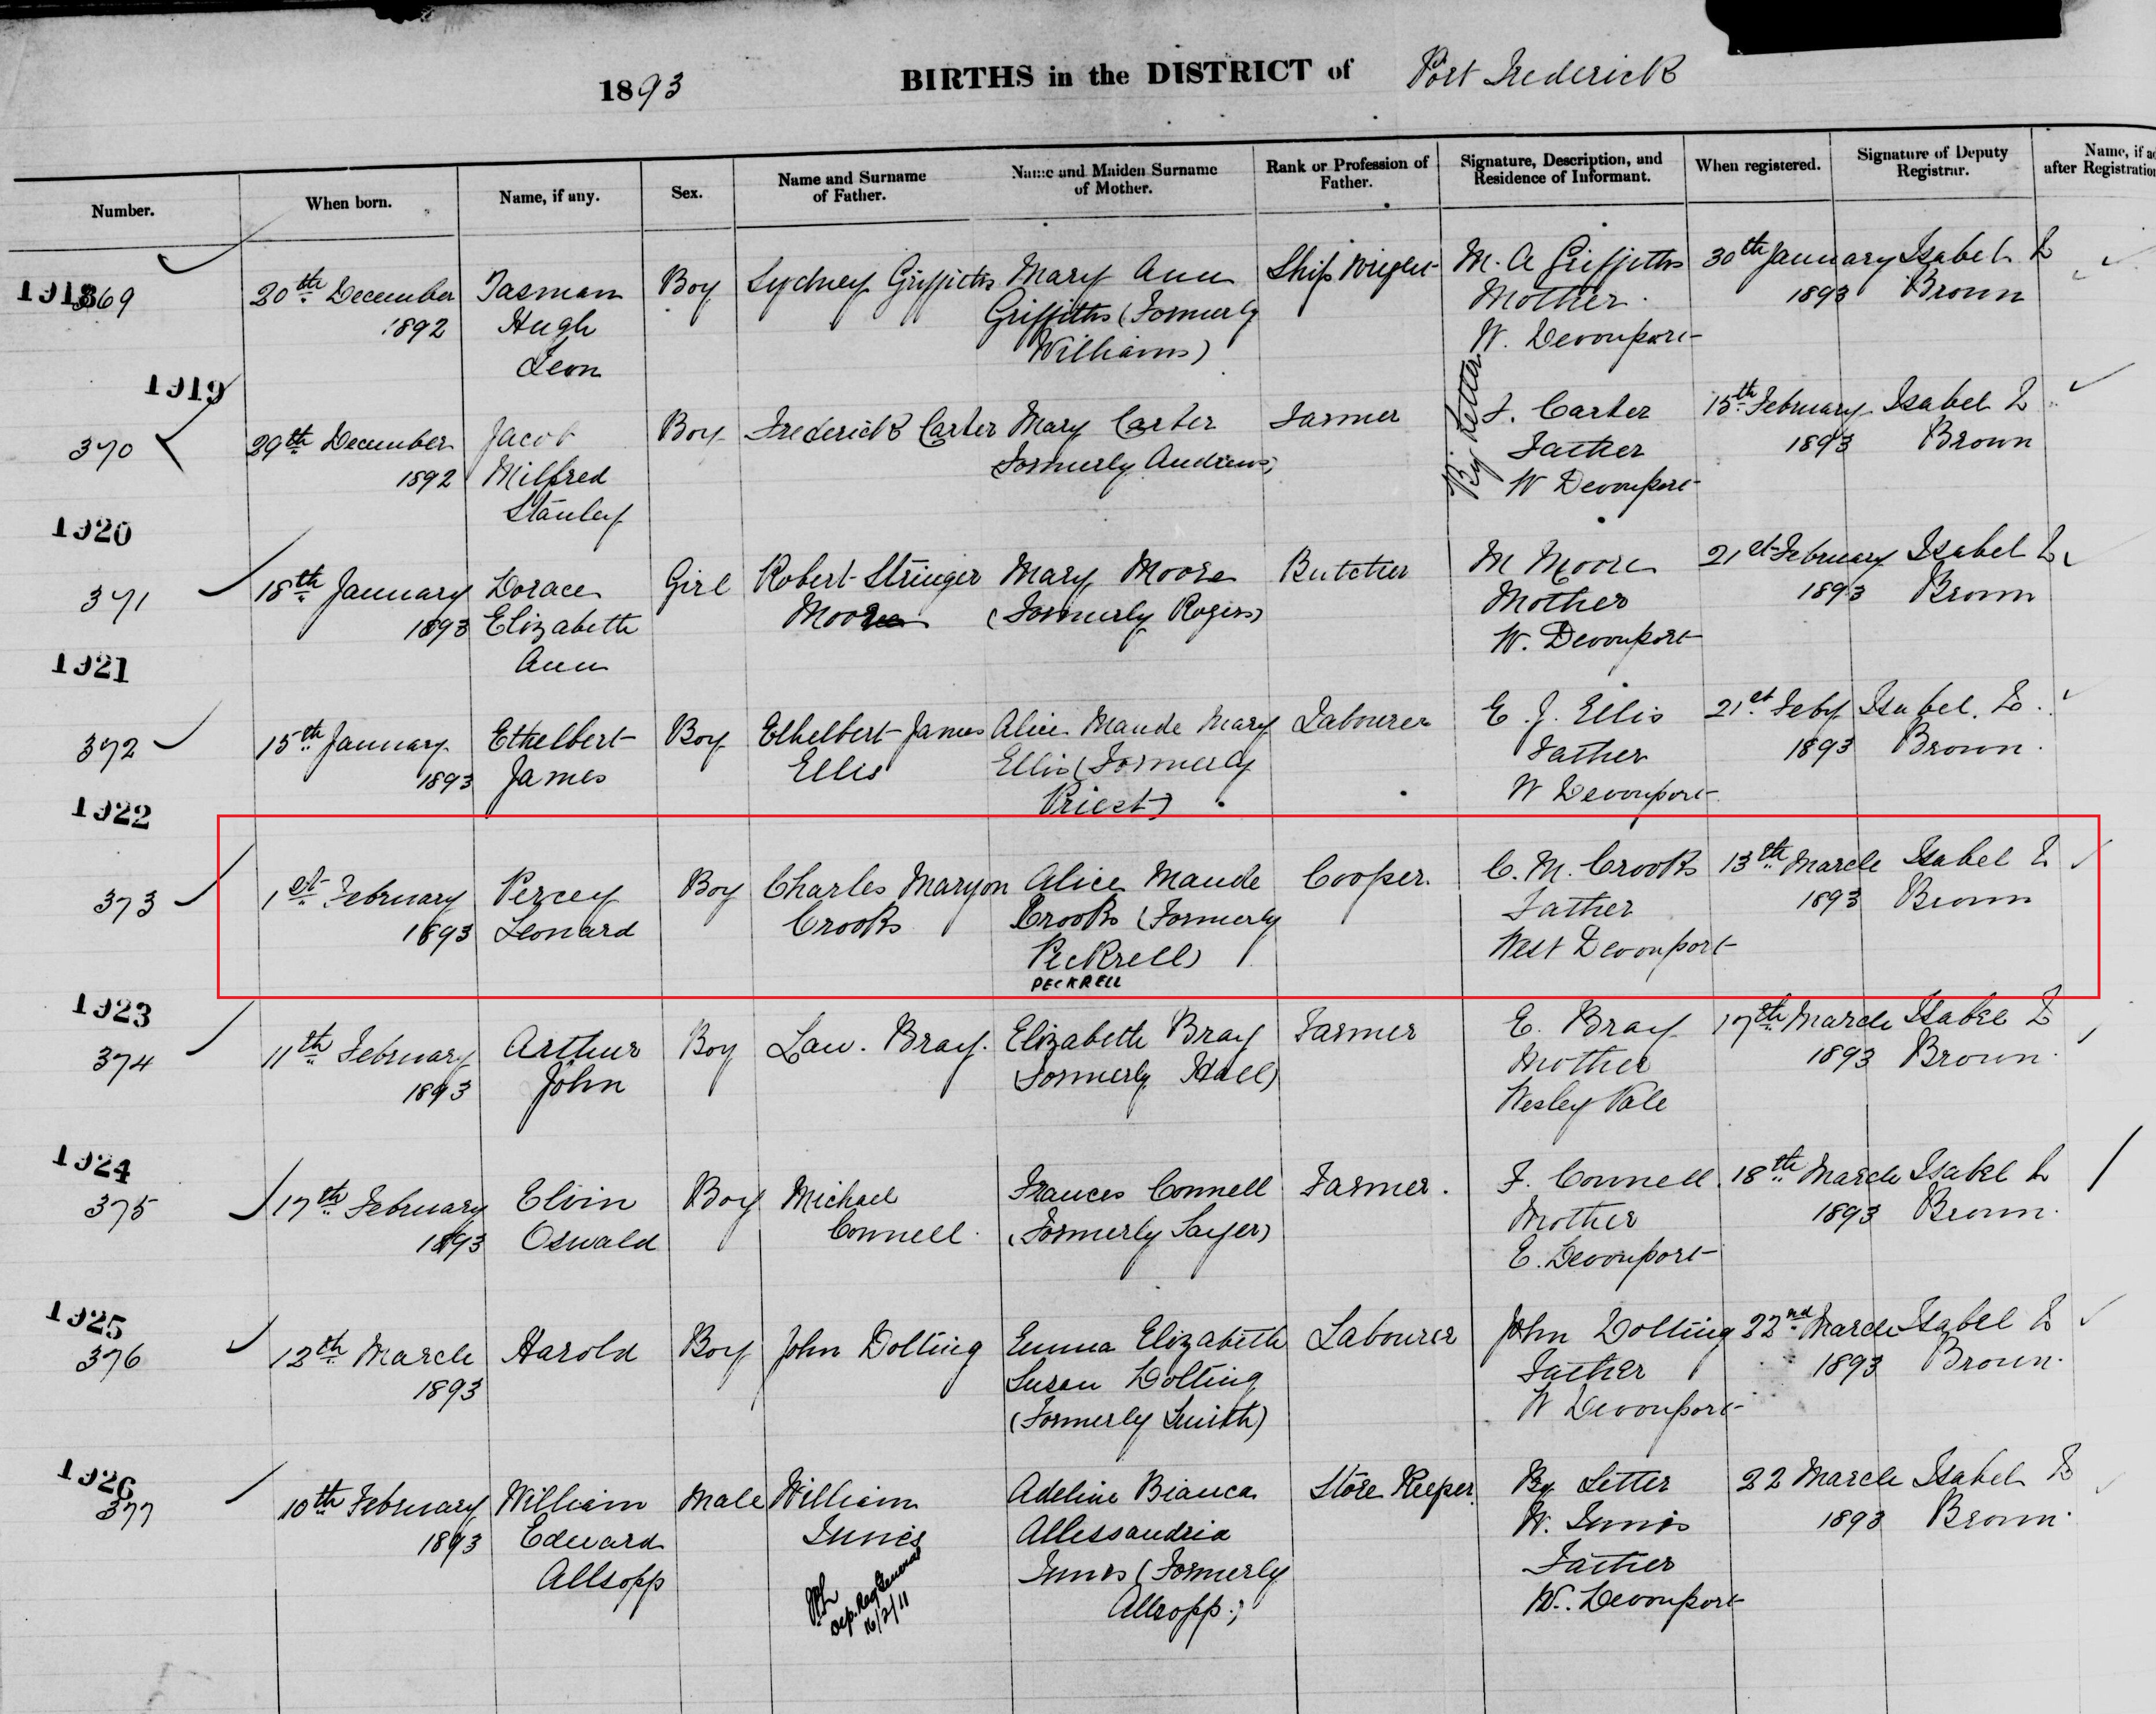 1893 BIRTHS in the DISTRICT of Port Frederick
Number. When born. Name, if any. Sex. Name and Surname of Father. Name and Maiden Surname of Mother. Rank or Profession of Father. Signature, Description, and Residence of Informant. When registered. Signature of Deputy Registrar. Name, if ad after Registration
1918
369 20th December Tasman Boy Sydney Griffiths Mary Ann Ship Wright M. A Griffiths 30th January Isabel L
1892 Hugh Griffiths (Formerly Mother 1893 Brown
Leon Williams) W. Devonport
1919
370 29th December Jacob Boy Frederick Carter Mary Carter Farmer By Letter F. Carter 15th February Isabel L
1892 Milfred Formerly Andrews) Father 1893 Brown
Stanley W Devonport
1920
371 18th January Dorace Girl Robert Stringer Mary Moore Butcher M Moore 21st February Isabel L
1893 Elizabeth Moore (Formerly Rogers) Mother 1893 Brown
Ann W. Devonport
1921
372 15th January Ethelbert Boy Ethelbert James Alice Maude Mary Labourer E. J. Ellis 21st Feby Isabel. L.
1893 James Ellis Ellis (Formerly Father 1893 Brown.
Priest) W Devonport
1922
373 1st February Percey Boy Charles Maryon Alice Maude Cooper. C. M. Crooks 13th March Isabel L
1893 Leonard Crooks Crooks (Formerly Father 1893 Brown
Peckrell) West Devonport
PECKRELL
1923
374 11th February Arthur Boy Law. Bray. Elizabeth Bray Farmer E. Bray 17th March Isabel L
1893 John (Formerly Hall) Mother 1893 Brown.
Wesley Vale
1924
375 17th February Elvin Boy Michael Frances Connell Farmer. F. Connell 18th March Isabel L
1893 Oswald Connell. (Formerly Sayer) Mother 1893 Brown.
E. Devonport
1925
376 12th March Harold Boy John Dolting Emma Elizabeth Labourer John Dolting 22nd March Isabel L
1893 Susan Dolting Father 1893 Brown.
(Formerly Smith) W Devonport
1926
377 10th February William Male William Adeline Bianca Store Keeper. By Letter 22 March Isabel L
1893 Edward Innes Allessandria W. Innes 1893 Brown.
Allsopp Innes (Formerly Father
Dep. Reg General Allsopp.) W. Devonport
16/2/11